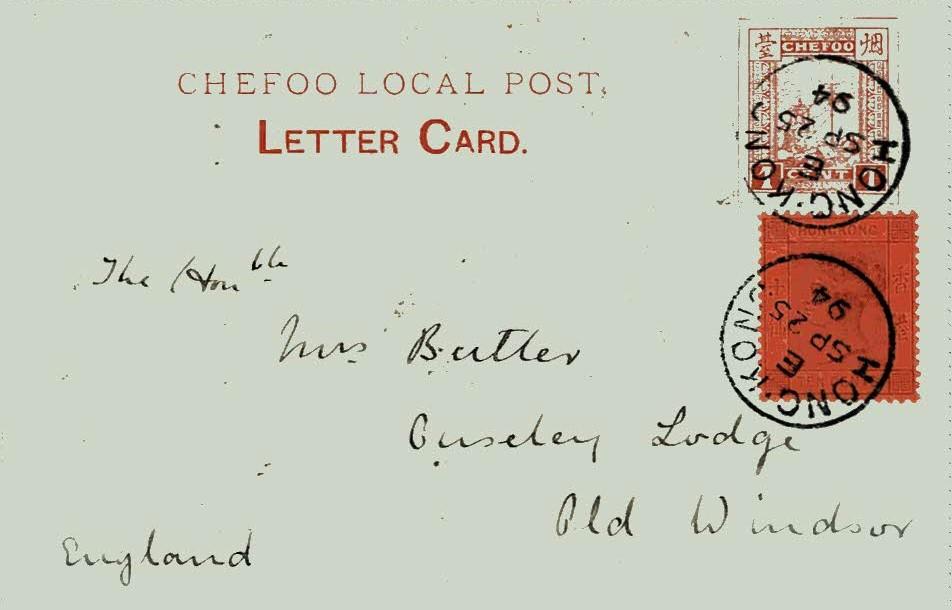 CHEFOO LOCAL POST.
LETTER CARD.
烟 臺
CHEFOO
1 CENT 1
HONG·KONG
E
SP 25
94
HONGKONG
HONG·KONG
E
SP 25
94
The Honble
Mrs Butler
Ouseley Lodge
Old Windsor
England